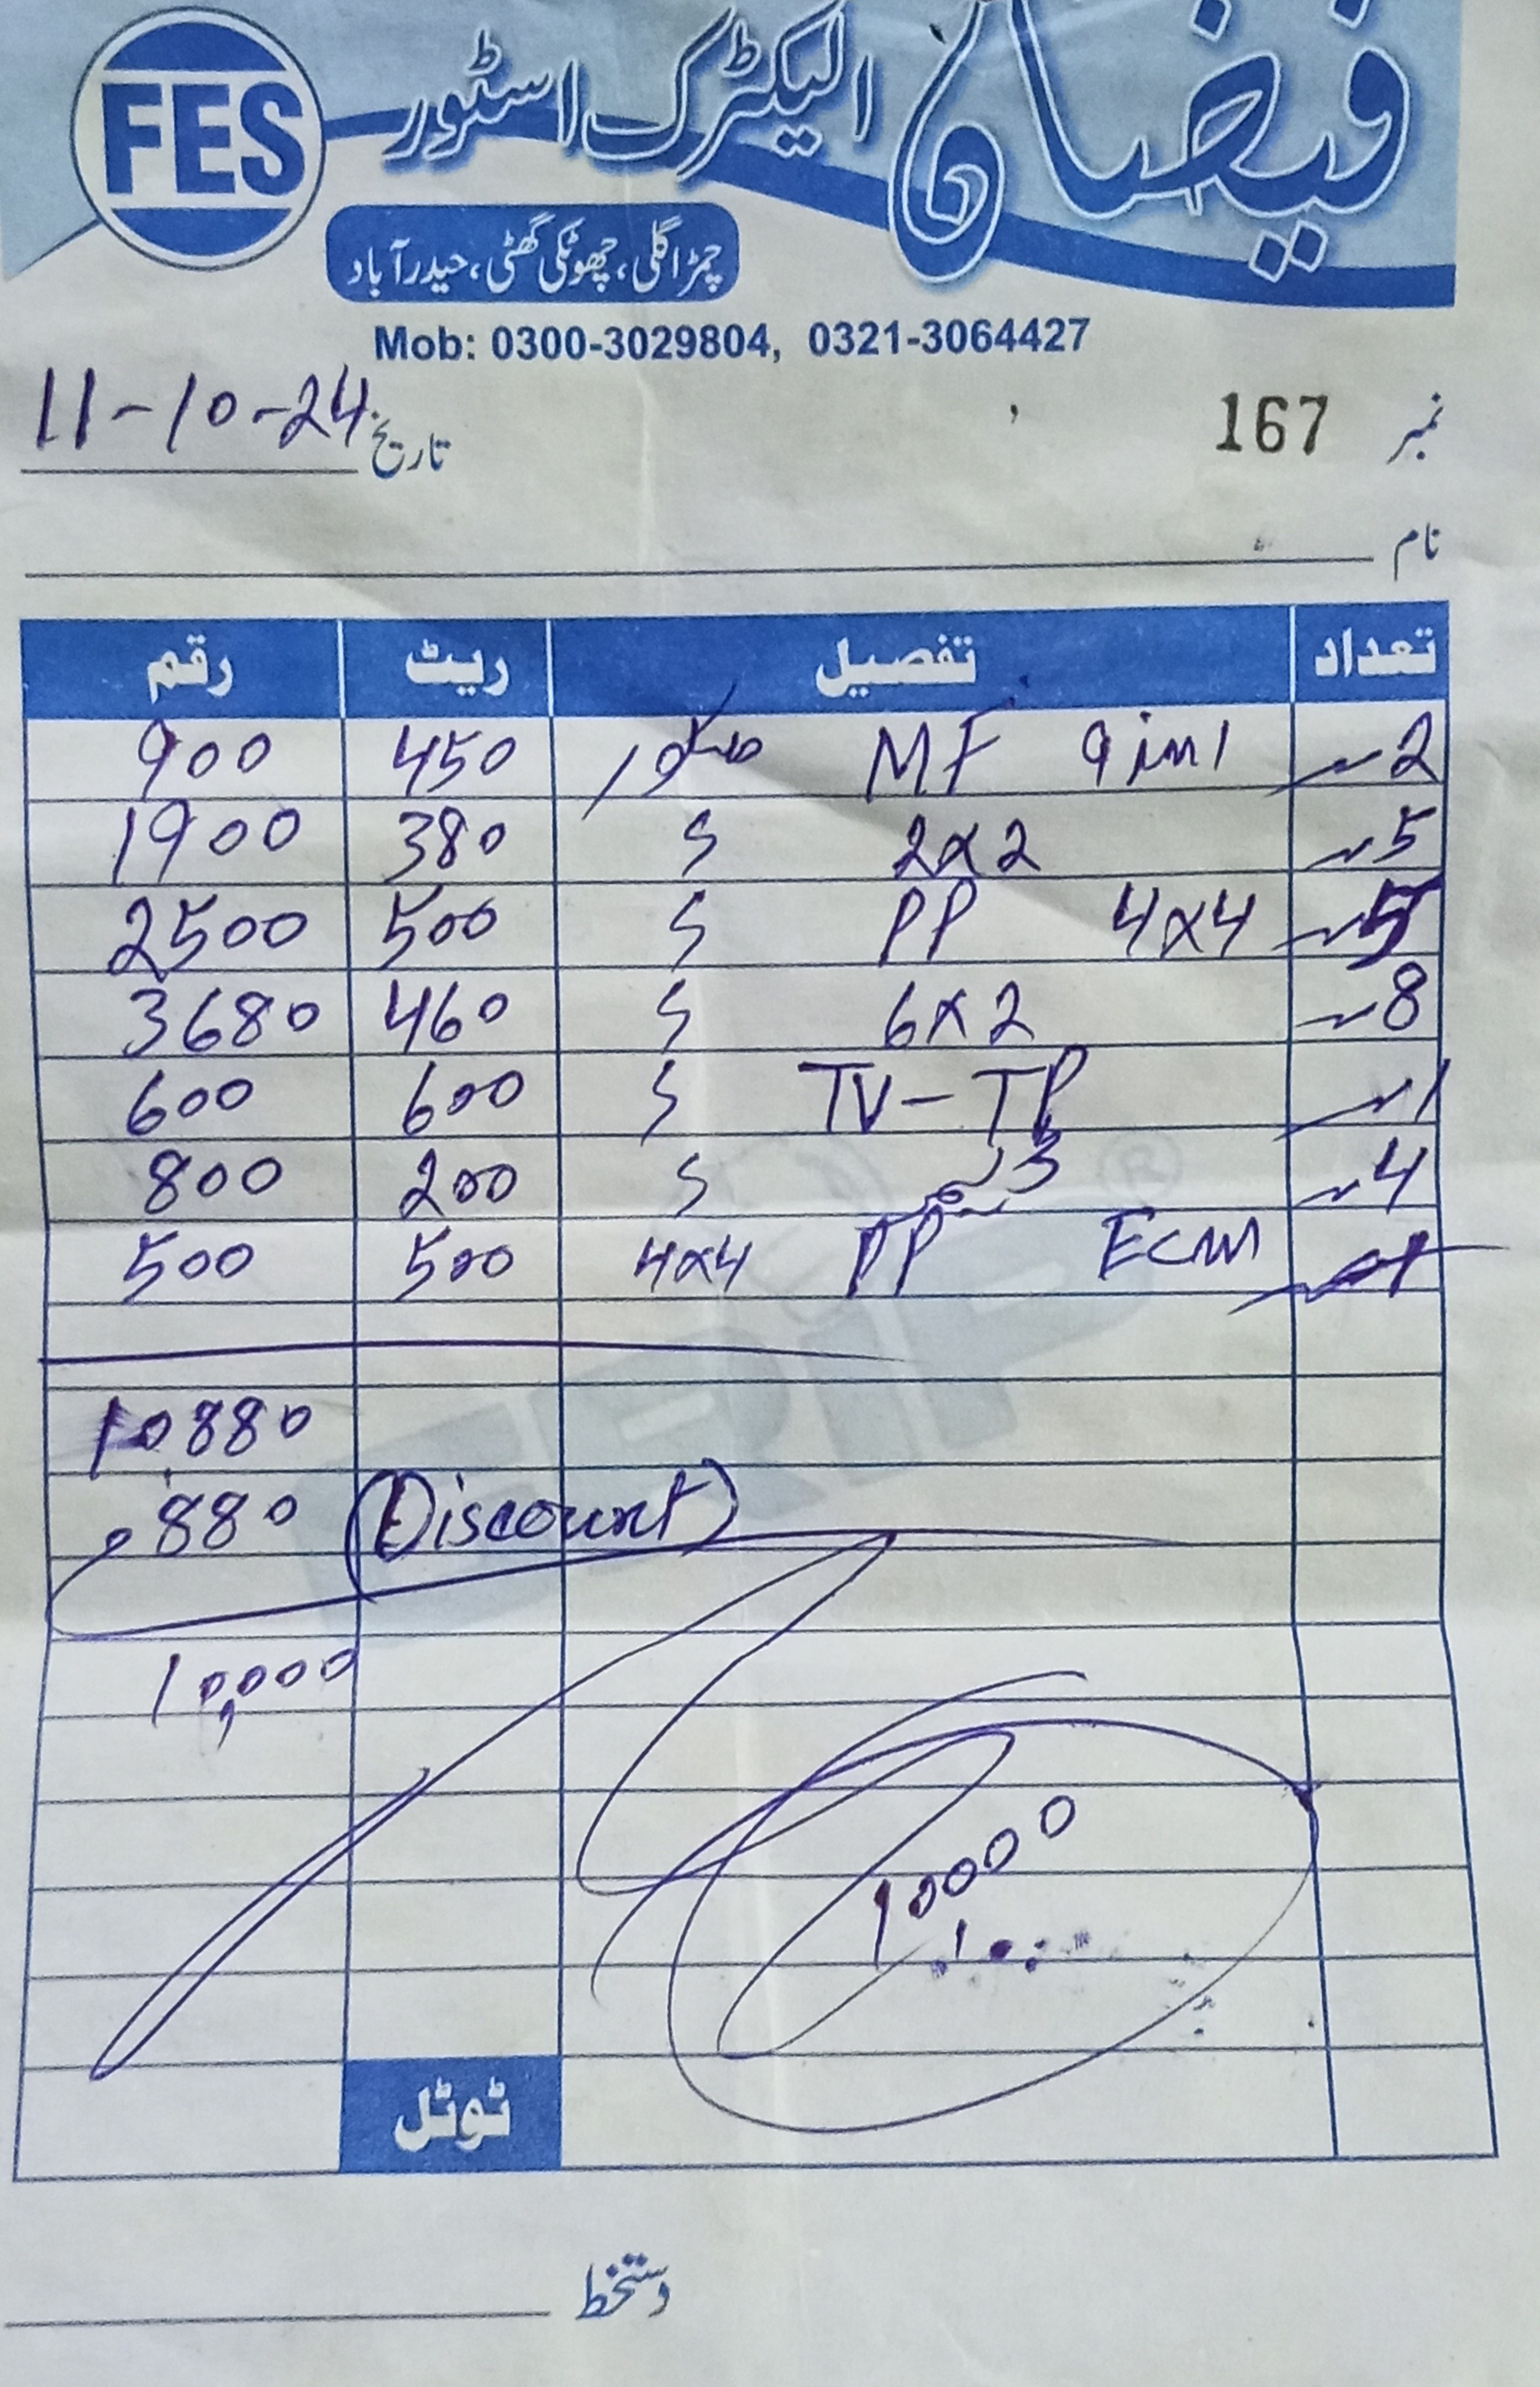 FES فیضان الیکٹرک اسٹور
چمڑا گلی، چھوٹکی گھٹی، حیدرآباد
Mob: 0300-3029804, 0321-3064427
نمبر 167 تاریخ 11-10-24
نام
تعداد تفصیل ریٹ رقم
2 MF 9 in 1 450 900
5 2x2 S 380 1900
5 PP 4x4 S 500 2500
8 6x2 S 460 3680
1 TV-TP S 600 600
4 S 200 800
PP 4x4 500 500
10880
880 (Discount)
10,000
10000
ٹوٹل
دستخط